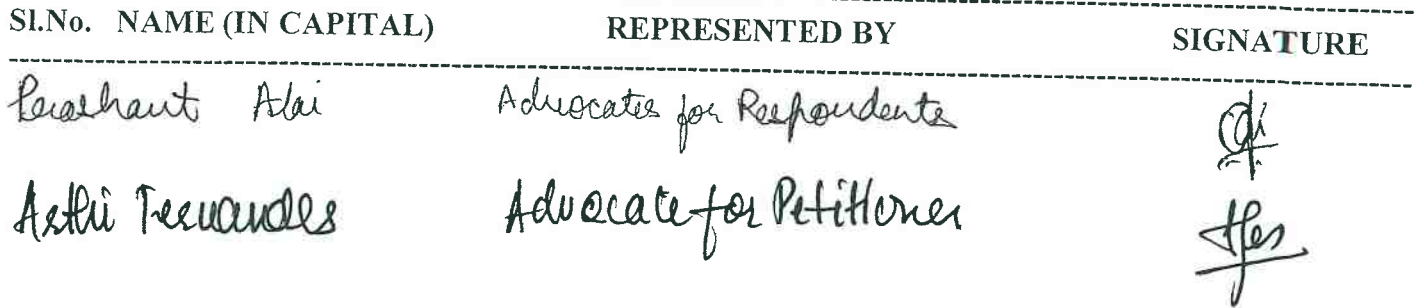 Sl.No. NAME (IN CAPITAL) REPRESENTED BY SIGNATURE
Prashant Alai Advocates for Respondents
Arthi Fernandes Advocate for Petitioner